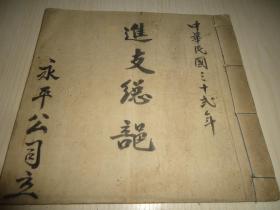 中華民國三十弍年
進支總部
永平公司立